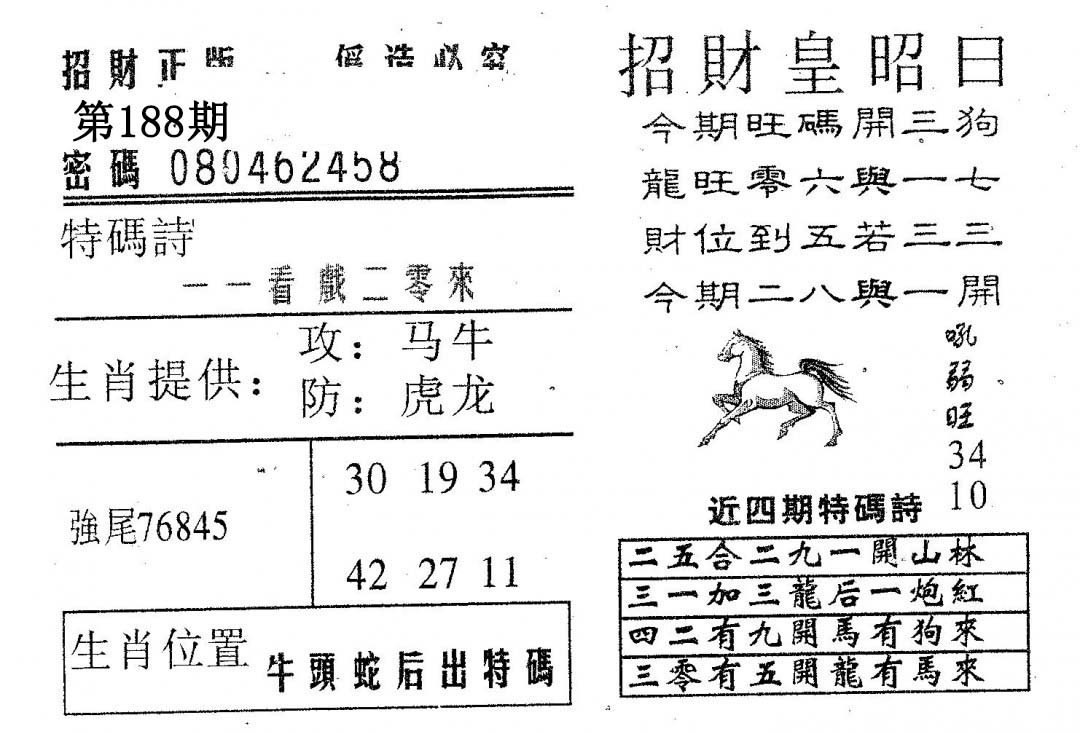 招財正版 僞造必究
第188期
密碼 080462458
特碼詩
一一看戲二零來
生肖提供：
攻：马牛
防：虎龙
強尾76845
30 19 34
42 27 11
生肖位置 牛頭蛇后出特碼
招財皇昭曰
今期旺碼開三狗
龍旺零六與一七
財位到五若三三
今期二八與一開
吼弱旺
34
10
近四期特碼詩
二五合二九一開山林
三一加三龍后一炮紅
四二有九開馬有狗來
三零有五開龍有馬來